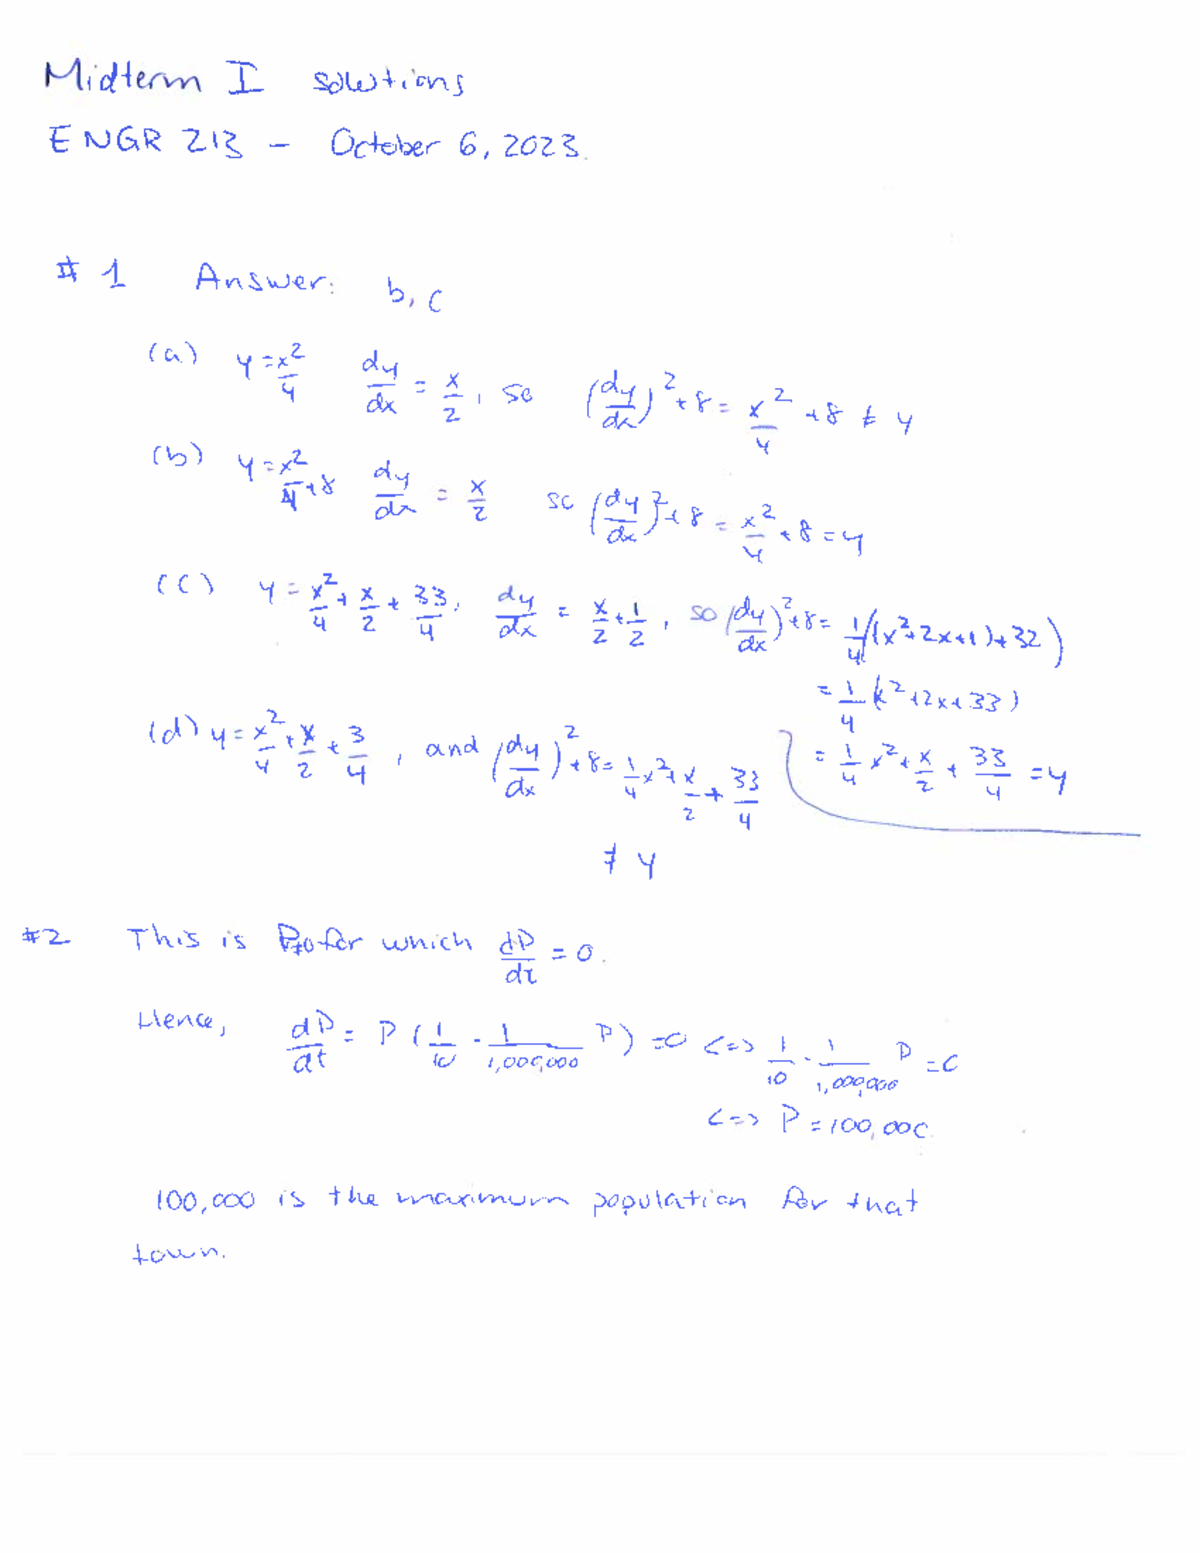 Midterm I solutions
ENGR 213 - October 6, 2023.
# 1 Answer: b, c
(a) y = x²/4 dy/dx = x/2, so (dy/dx)² + 8 = x²/4 + 8 ≠ y
(b) y = x²/4 + 8 dy/dx = x/2 so (dy/dx)² + 8 = x²/4 + 8 = y
(c) y = x²/4 + x/2 + 33/4, dy/dx = x/2 + 1/2, so (dy/dx)² + 8 = 1/4((x² + 2x + 1) + 32)
= 1/4 (x² + 2x + 33)
= 1/4 x² + x/2 + 33/4 = y
(d) y = x²/4 + x/2 + 3/4, and (dy/dx)² + 8 = 1/4 x² + x/2 + 33/4
≠ y
#2 This is P≠0 for which dP/dt = 0.
Hence, dP/dt = P (1/10 - 1/1,000,000 P) = 0 <=> 1/10 - 1/1,000,000 P = 0
<=> P = 100,000.
100,000 is the maximum population for that
town.